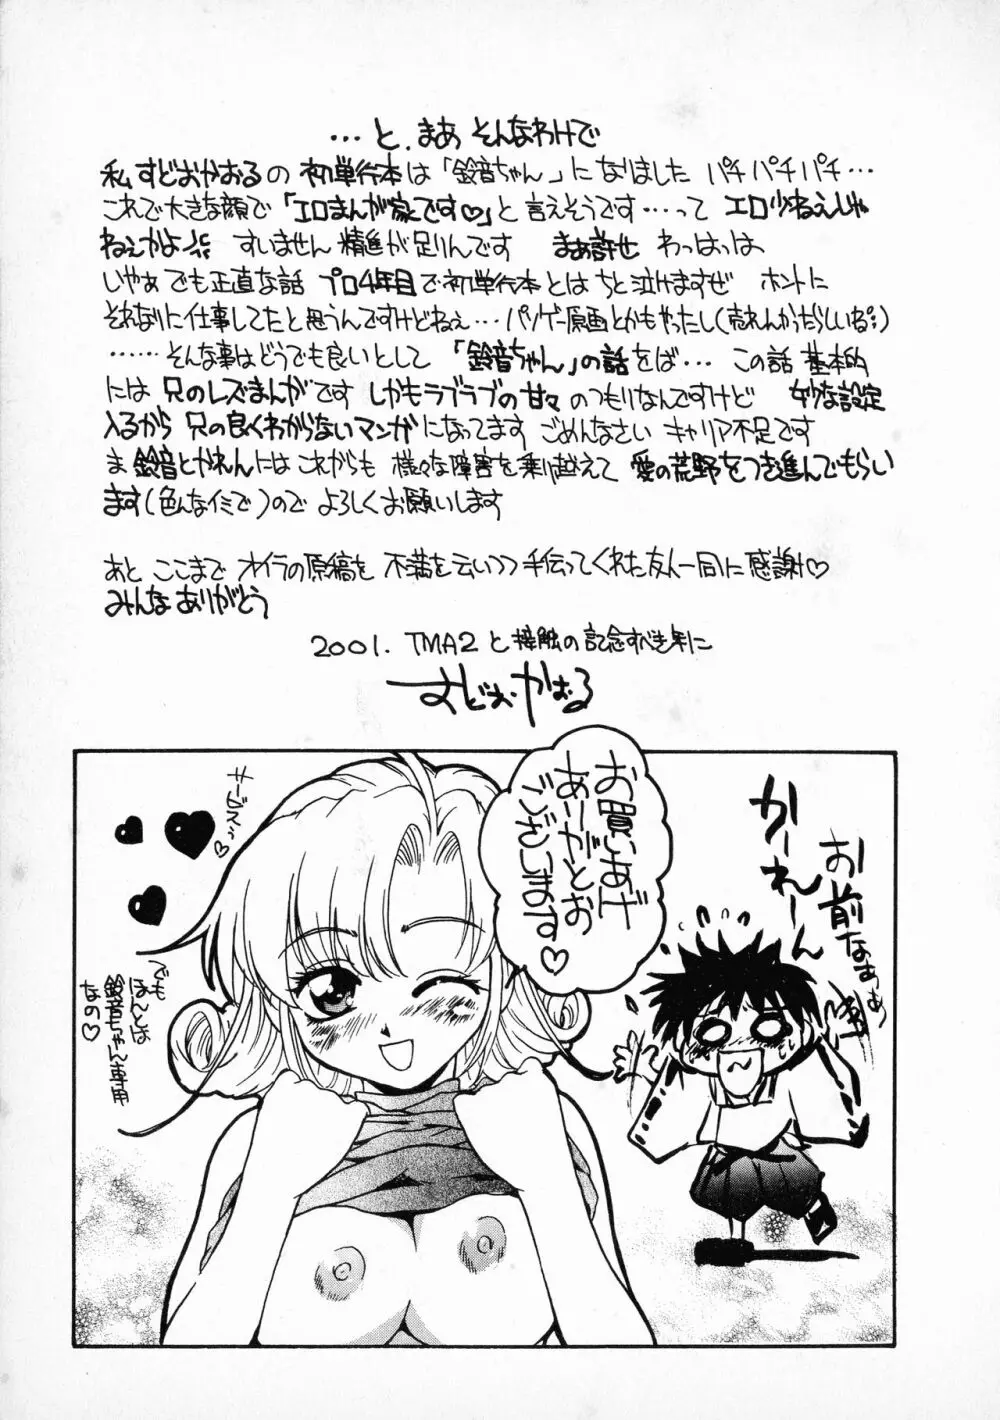 …と、まあ そんなわけで
私 すどおかおるの 初単行本は「鈴音ちゃん」になりました パチパチパチ…
これで大きな顔で「エロまんが家です♡」と言えそうです…って エロ少ねえじゃ
ねえかよ すいません 精進が足りんです まあ許せ わっはっは
いやあ でも正直な話 プロ4年目で初単行本とは ちと泣けますぜ ホントに
それなりに仕事してたと思うんですけどねえ…パソゲー原画とかもやったし(売れんかったらしいね)
……そんな事はどうでも良いとして「鈴音ちゃん」の話をば… この話 基本的
には 兄のレズまんがです しかもラブラブの甘々のつもりなんですけど 妙な設定
入るから 兄の良くわからないマンガになってます ごめんなさい キャリア不足です
ま 鈴音とかれんには これからも 様々な障害を乗り越えて 愛の荒野をつき進んでもらい
ます(色んなイミで)ので よろしくお願いします
あと ここまで オイラの原稿を 不満を云いつつ手伝ってくれた友人一同に感謝♡
みんなありがとう
2001. TMA2と接触の記念すべき年に
すどおかおる
サービスぅ♡
お買いあげ
ありがとお
ございます♡
かーれーん
お前なああ
でも
ほんとは
鈴音ちゃん専用
なの♡